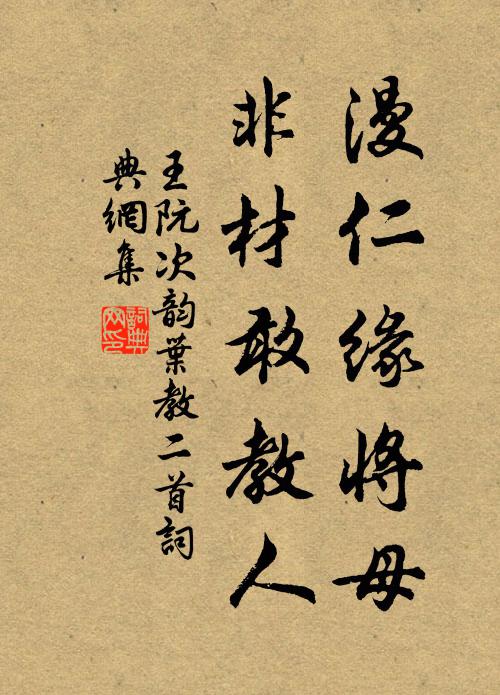 漫仁缘将母
非材敢教人
王阮次韵葉教二首詞
典網集
詞典网印